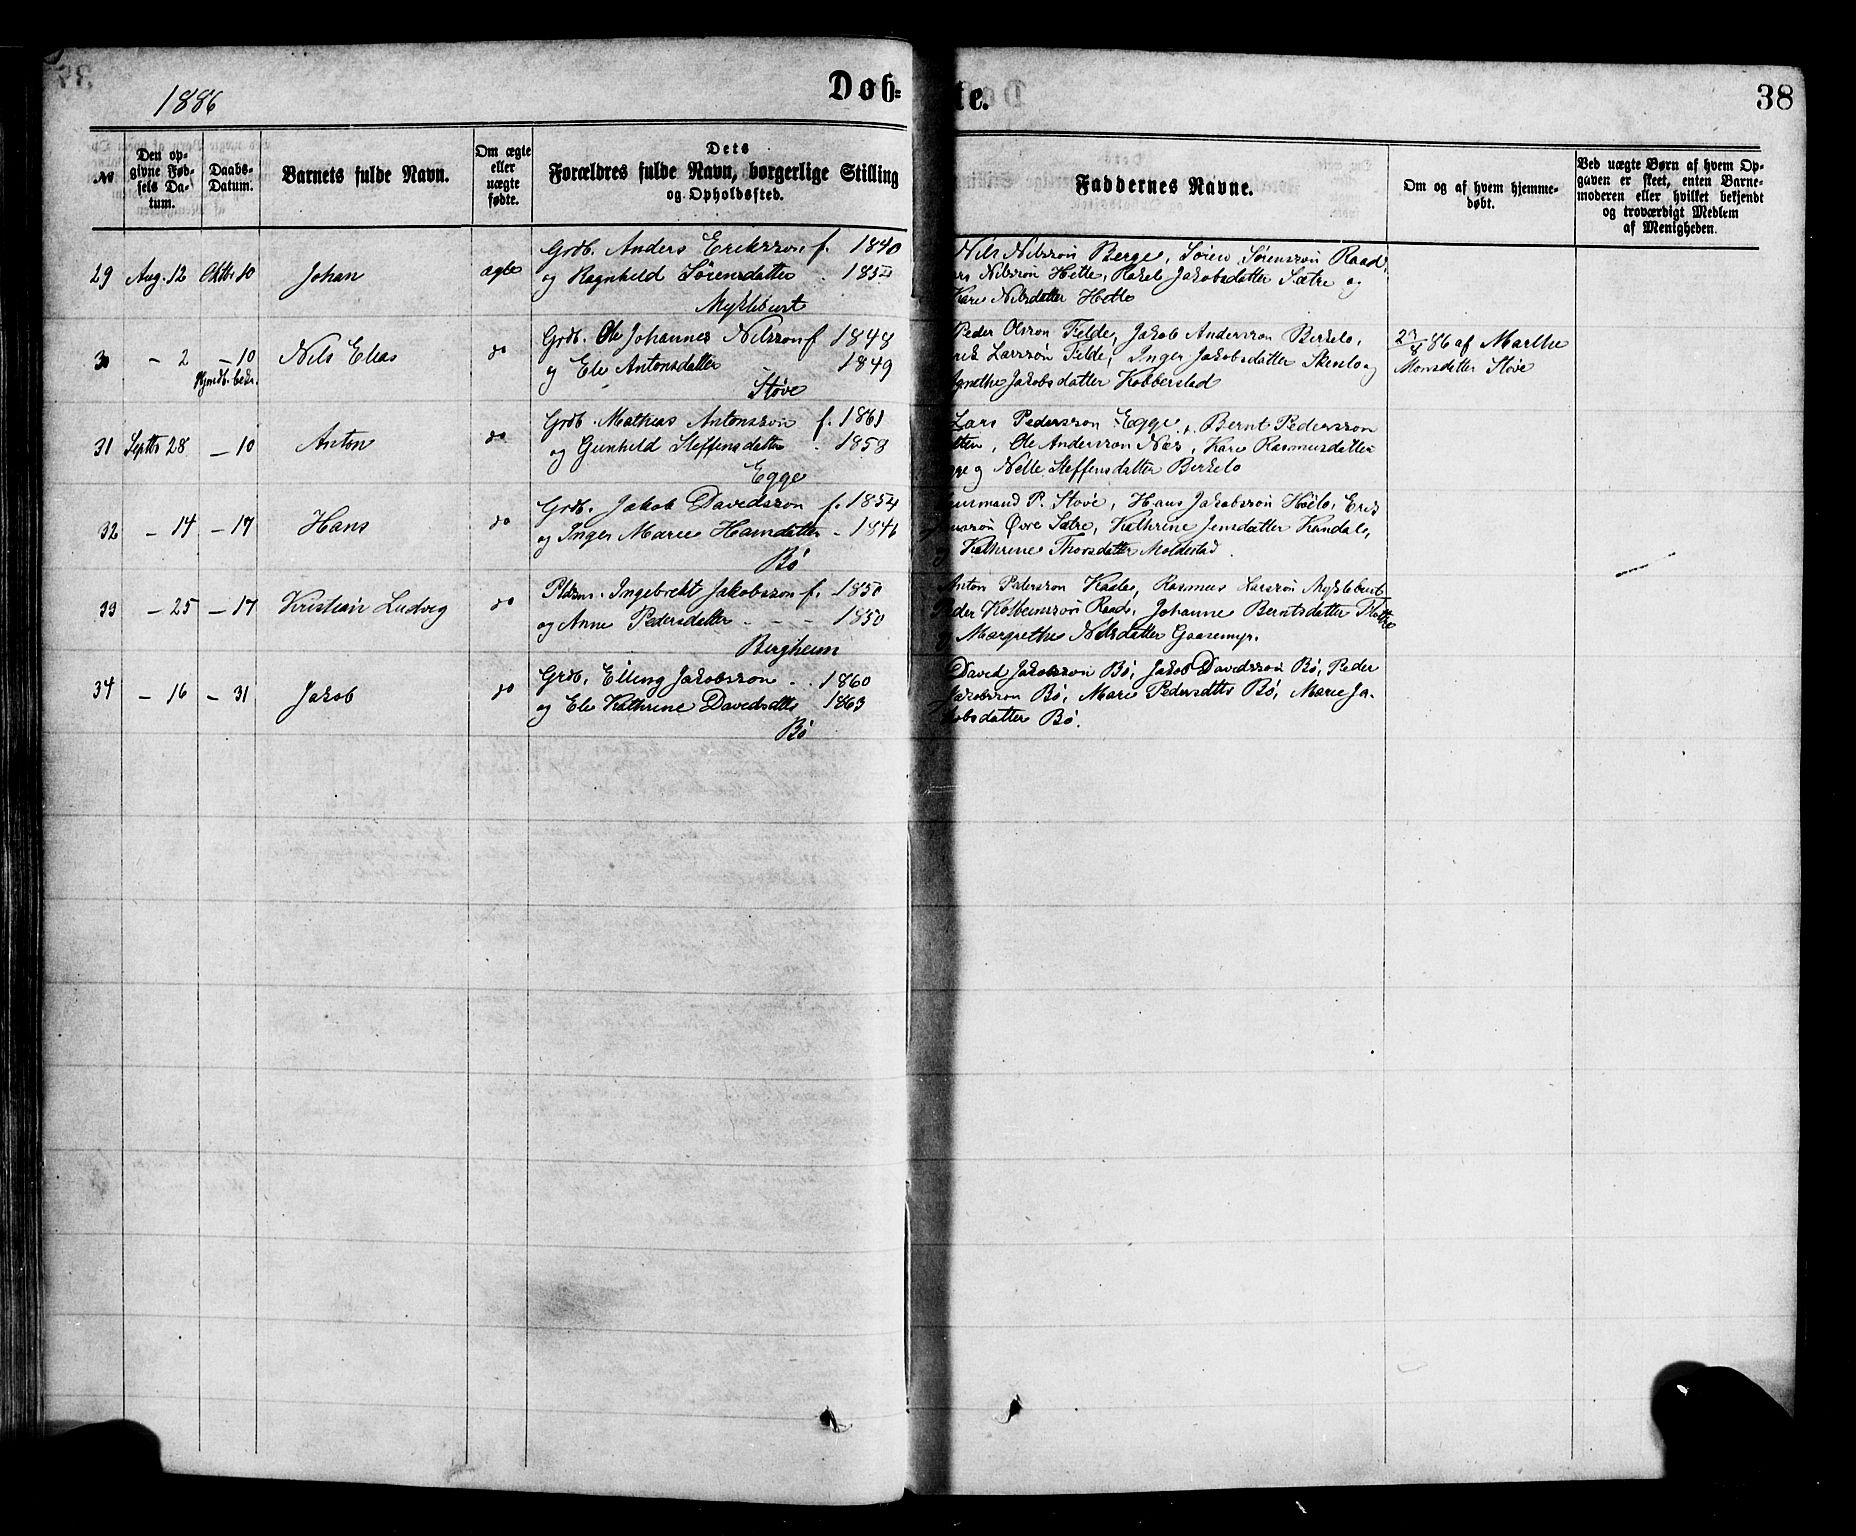 1886
Døb=
te.
38
№
Den opgivne Fødsels Datum.
Daabs-Datum.
Barnets fulde Navn.
Om ægte eller uægte fødte.
Dets
Forældres fulde Navn, borgerlige Stilling
og Opholdssted.
Faddernes Navne.
Om og af hvem hjemmedøbt.
Ved uægte Børn af hvem Opgaven er skeet, enten Barnemoderen eller hvilket bekjendt og troværdigt Medlem af Menigheden.
29 Aug. 12 Oktbr 10 Johan ægte
Grdb. Anders Eriksson f. 1840
og Ragnhild Sørensdatter
Myklebust
Nils Nilsson Berge, Søren Sørensson Raad,
Nilsson Hetle, Rakel Jakobsdatter Sætre og
Kari Nilsdatter Hetle
30 – 2 – 10 Nils Elias do
Hjmdb. bekr.
Grdb. Ole Johannes Nilsson f 1848
og Eli Antonsdatter 1849
Støve
Peder Olsson Felde, Jakob Andersson Birkelo,
Larsson Felde, Inger Jakobsdatter og
Jakobsdatter Kobberstad
27/8 86 af Marthe
Monsdatter Støve
31 Septbr 28 – 10 Anton do
Grdb. Mathias Antonsson f. 1861
og Gunhild Steffensdatter . 1858
Egge
Lars Pedersson Egge, Bernt Pedersson
Ole Andersson Nes, Kari Rasmusdatter
og Nille Steffensdatter Birkelo
32 – 14 – 17 Hans do
Grdb. Jakob Davidsson f. 1854
og Inger Marie Hansdatter - 1846
Bø
P. Støve, Hans Jakobsson Erik
Øvre Sætre, Kathrine Jensdatter Kandal,
Kathrine Thorsdatter Moldestad.
33 – 25 – 17 Kristian Ludvig do
Pldsm. Ingebrekt Jakobsson f. 1850
og Anne Pedersdatter - - - 1850
Bergheim
Anton Pedersson Rasmus Larsson Myklebust
Peder Kolbeinsson Raad, Johanne Berntsdatter
Margrethe Nilsdatter Gaasemyr.
34 – 16 – 31 Jakob do
Grdb. Elling Jakobsson . . 1860
og Eli Kathrine Davidsdtr 1863
Bø
David Jakobsson Bø, Jakob Davidsson Bø, Peder
Jakobsson Bø, Marie Pedersdtr Bø, Marie Ja-
kobsdatter Bø.